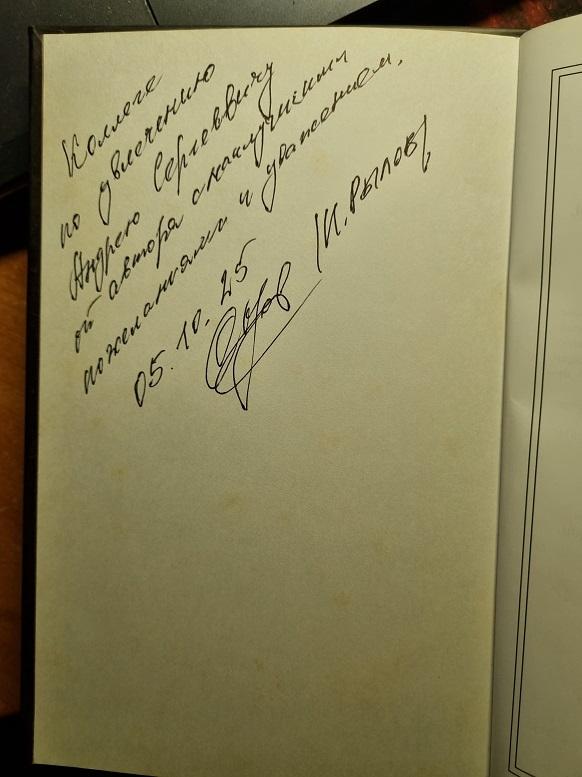 Коллеге
по увлечению
Андрею Сергеевичу
от автора с наилучшими
пожеланиями и уважением.
05.10.25
/И. Рылов/